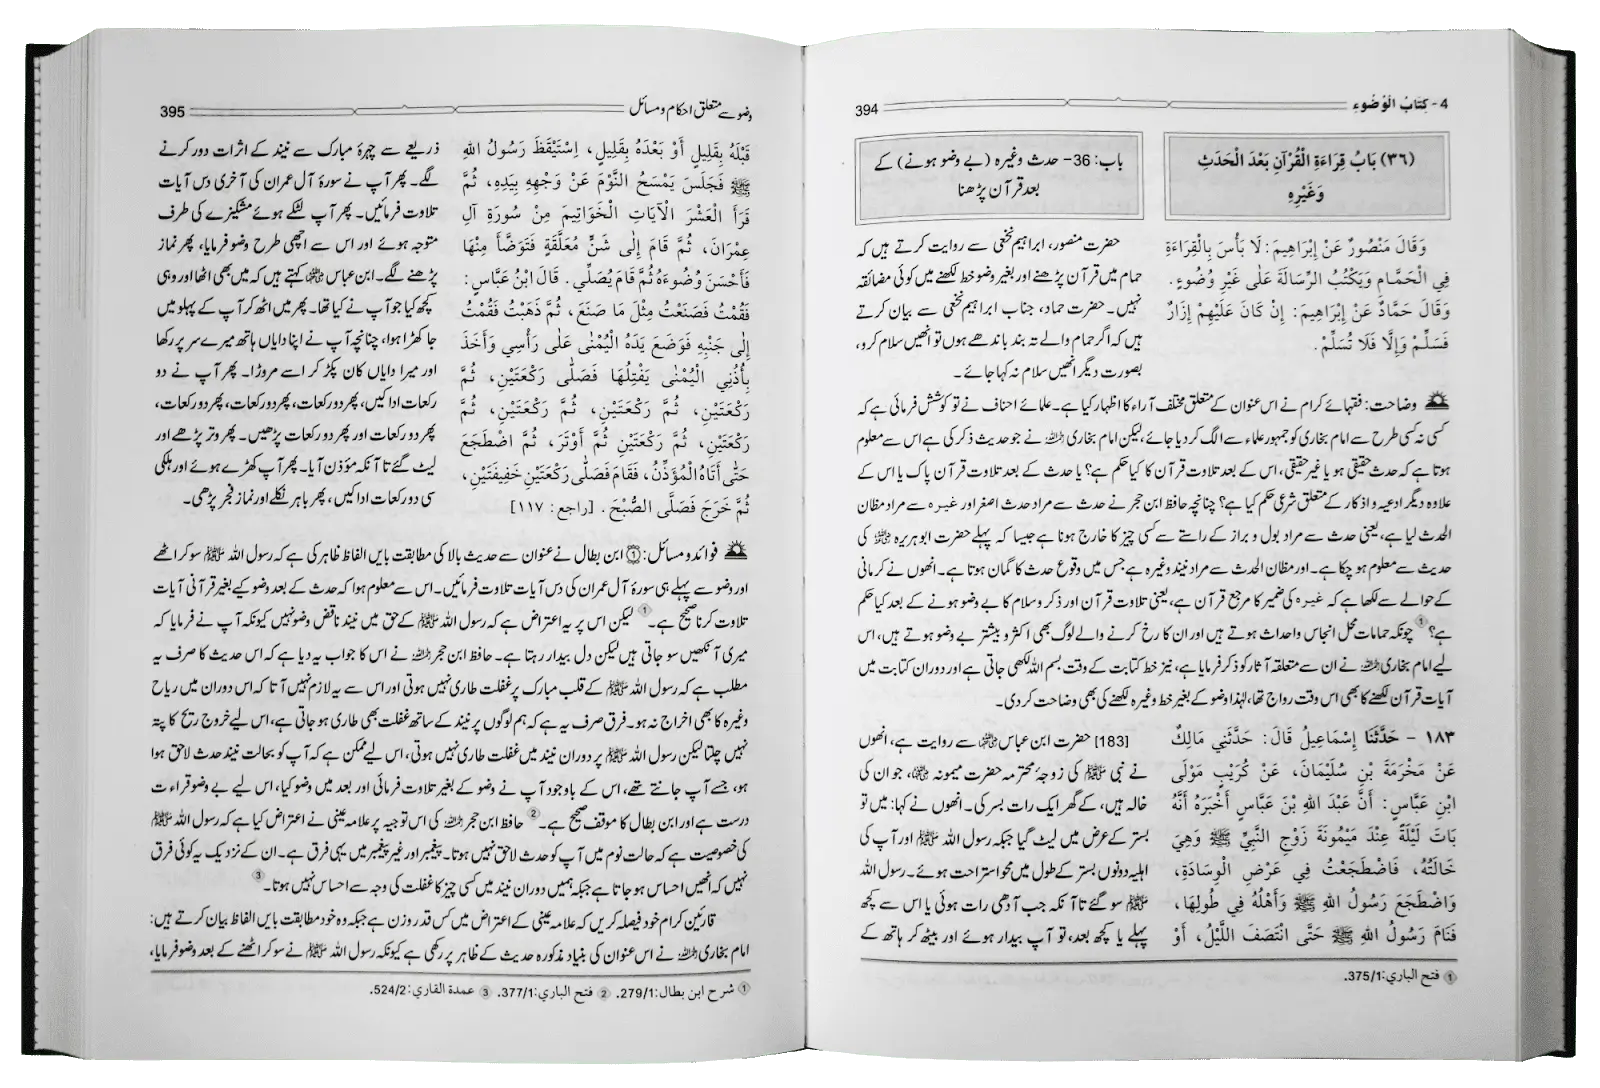 4- كِتَابُ الْوُضُوءِ
394
(٣٦) بَابُ قِرَاءَةِ الْقُرْآنِ بَعْدَ الْحَدَثِ
وَغَيْرِهِ
وَقَالَ مَنْصُورٌ عَنْ إِبْرَاهِيمَ: لَا بَأْسَ بِالْقِرَاءَةِ
فِي الْحَمَّامِ وَيَكْتُبُ الرِّسَالَةَ عَلٰى غَيْرِ وُضُوءٍ.
وَقَالَ حَمَّادٌ عَنْ إِبْرَاهِيمَ: إِنْ كَانَ عَلَيْهِمْ إِزَارٌ
فَسَلِّمْ وَإِلَّا فَلَا تُسَلِّمْ.
باب: 36- حدث وغیرہ (بے وضو ہونے) کے
بعد قرآن پڑھنا
حضرت منصور، ابراہیم نخعی سے روایت کرتے ہیں کہ
حمام میں قرآن پڑھنے اور بغیر وضو خط لکھنے میں کوئی مضائقہ
نہیں۔ حضرت حماد، جناب ابراہیم نخعی سے بیان کرتے
ہیں کہ اگر حمام والے تہ بند باندھے ہوں تو انھیں سلام کرو،
بصورت دیگر انھیں سلام نہ کہا جائے۔
وضاحت: فقہائے کرام نے اس عنوان کے متعلق مختلف آراء کا اظہار کیا ہے۔ علمائے احناف نے تو کوشش فرمائی ہے کہ
کسی نہ کسی طرح سے امام بخاری کو جمہور علماء سے الگ کر دیا جائے، لیکن امام بخاری رحمہ اللہ نے جو حدیث ذکر کی ہے اس سے معلوم
ہوتا ہے کہ حدث حقیقی ہو یا غیر حقیقی، اس کے بعد تلاوت قرآن کا کیا حکم ہے؟ یا حدث کے بعد تلاوت قرآن پاک یا اس کے
علاوہ دیگر ادعیہ و اذکار کے متعلق شرعی حکم کیا ہے؟ چنانچہ حافظ ابن حجر نے حدث سے مراد حدث اصغر اور غیرہ سے مراد مظان
الحدث لیا ہے، یعنی حدث سے مراد بول و براز کے راستے سے کسی چیز کا خارج ہونا ہے جیسا کہ پہلے حضرت ابوہریرہ رضی اللہ عنہ کی
حدیث سے معلوم ہو چکا ہے۔ اور مظان الحدث سے مراد نیند وغیرہ ہے جس میں وقوع حدث کا گمان ہوتا ہے۔ انھوں نے کرمانی
کے حوالے سے لکھا ہے کہ غیرہ کی ضمیر کا مرجع قرآن ہے، یعنی تلاوت قرآن اور ذکر و سلام کا بے وضو ہونے کے بعد کیا حکم
ہے؟ ① چونکہ حمامات محل انجاس و احداث ہوتے ہیں اور ان کا رخ کرنے والے لوگ بھی اکثر و بیشتر بے وضو ہوتے ہیں، اس
لیے امام بخاری رحمہ اللہ نے ان سے متعلقہ آثار کو ذکر فرمایا ہے، نیز خط کتابت کے وقت بسم اللہ لکھی جاتی ہے اور دوران کتابت میں
آیات قرآن لکھنے کا بھی اس وقت رواج تھا، لہٰذا وضو کے بغیر خط وغیرہ لکھنے کی بھی وضاحت کر دی۔
١٨٣ - حَدَّثَنَا إِسْمَاعِيلُ قَالَ: حَدَّثَنِي مَالِكٌ
عَنْ مَخْرَمَةَ بْنِ سُلَيْمَانَ، عَنْ كُرَيْبٍ مَوْلَى
ابْنِ عَبَّاسٍ: أَنَّ عَبْدَ اللهِ بْنَ عَبَّاسٍ أَخْبَرَهُ أَنَّهُ
بَاتَ لَيْلَةً عِنْدَ مَيْمُونَةَ زَوْجِ النَّبِيِّ ﷺ وَهِيَ
خَالَتُهُ، فَاضْطَجَعْتُ فِي عَرْضِ الْوِسَادَةِ،
وَاضْطَجَعَ رَسُولُ اللهِ ﷺ وَأَهْلُهُ فِي طُولِهَا،
فَنَامَ رَسُولُ اللهِ ﷺ حَتَّى انْتَصَفَ اللَّيْلُ، أَوْ
[183] حضرت ابن عباس رضی اللہ عنہما سے روایت ہے، انھوں
نے نبی ﷺ کی زوجۂ محترمہ حضرت میمونہ رضی اللہ عنہا، جو ان کی
خالہ ہیں، کے گھر ایک رات بسر کی۔ انھوں نے کہا: میں تو
بستر کے عرض میں لیٹ گیا جبکہ رسول اللہ ﷺ اور آپ کی
اہلیہ دونوں بستر کے طول میں محو استراحت ہوئے۔ رسول اللہ
ﷺ سو گئے تا آنکہ جب آدھی رات ہوئی یا اس سے کچھ
پہلے یا کچھ بعد، تو آپ بیدار ہوئے اور بیٹھ کر ہاتھ کے
① فتح الباري: 375/1.
وضو سے متعلق احکام و مسائل
395
قَبْلَهُ بِقَلِيلٍ أَوْ بَعْدَهُ بِقَلِيلٍ، اِسْتَيْقَظَ رَسُولُ اللهِ
ﷺ فَجَلَسَ يَمْسَحُ النَّوْمَ عَنْ وَجْهِهِ بِيَدِهِ، ثُمَّ
قَرَأَ الْعَشْرَ الْآيَاتِ الْخَوَاتِيمَ مِنْ سُورَةِ آلِ
عِمْرَانَ، ثُمَّ قَامَ إِلٰى شَنٍّ مُعَلَّقَةٍ فَتَوَضَّأَ مِنْهَا
فَأَحْسَنَ وُضُوءَهُ ثُمَّ قَامَ يُصَلِّي. قَالَ ابْنُ عَبَّاسٍ:
فَقُمْتُ فَصَنَعْتُ مِثْلَ مَا صَنَعَ، ثُمَّ ذَهَبْتُ فَقُمْتُ
إِلٰى جَنْبِهِ فَوَضَعَ يَدَهُ الْيُمْنٰى عَلٰى رَأْسِي وَأَخَذَ
بِأُذُنِي الْيُمْنٰى يَفْتِلُهَا فَصَلّٰى رَكْعَتَيْنِ، ثُمَّ
رَكْعَتَيْنِ، ثُمَّ رَكْعَتَيْنِ، ثُمَّ رَكْعَتَيْنِ، ثُمَّ
رَكْعَتَيْنِ، ثُمَّ رَكْعَتَيْنِ ثُمَّ أَوْتَرَ، ثُمَّ اضْطَجَعَ
حَتّٰى أَتَاهُ الْمُؤَذِّنُ، فَقَامَ فَصَلّٰى رَكْعَتَيْنِ خَفِيفَتَيْنِ،
ثُمَّ خَرَجَ فَصَلَّى الصُّبْحَ. [راجع: ١١٧]
ذریعے سے چہرۂ مبارک سے نیند کے اثرات دور کرنے
لگے۔ پھر آپ نے سورۂ آل عمران کی آخری دس آیات
تلاوت فرمائیں۔ پھر آپ لٹکے ہوئے مشکیزے کی طرف
متوجہ ہوئے اور اس سے اچھی طرح وضو فرمایا، پھر نماز
پڑھنے لگے۔ ابن عباس رضی اللہ عنہما کہتے ہیں کہ میں بھی اٹھا اور وہی
کچھ کیا جو آپ نے کیا تھا۔ پھر میں اٹھ کر آپ کے پہلو میں
جا کھڑا ہوا، چنانچہ آپ نے اپنا دایاں ہاتھ میرے سر پر رکھا
اور میرا دایاں کان پکڑ کر اسے مروڑا۔ پھر آپ نے دو
رکعات ادا کیں، پھر دو رکعات، پھر دو رکعات، پھر دو رکعات،
پھر دو رکعات اور پھر دو رکعات پڑھیں۔ پھر وتر پڑھے اور
لیٹ گئے تا آنکہ مؤذن آیا۔ پھر آپ کھڑے ہوئے اور ہلکی
سی دو رکعات ادا کیں، پھر باہر نکلے اور نماز فجر پڑھی۔
فوائد و مسائل: ① ابن بطال نے عنوان سے حدیث بالا کی مطابقت بایں الفاظ ظاہر کی ہے کہ رسول اللہ ﷺ سو کر اٹھے
اور وضو سے پہلے ہی سورۂ آل عمران کی دس آیات تلاوت فرمائیں۔ اس سے معلوم ہوا کہ حدث کے بعد وضو کیے بغیر قرآنی آیات
تلاوت کرنا صحیح ہے۔ ① لیکن اس پر یہ اعتراض ہے کہ رسول اللہ ﷺ کے حق میں نیند ناقض وضو نہیں کیونکہ آپ نے فرمایا کہ
میری آنکھیں سو جاتی ہیں لیکن دل بیدار رہتا ہے۔ حافظ ابن حجر رحمہ اللہ نے اس کا جواب یہ دیا ہے کہ اس حدیث کا صرف یہ
مطلب ہے کہ رسول اللہ ﷺ کے قلب مبارک پر غفلت طاری نہیں ہوتی اور اس سے یہ لازم نہیں آتا کہ اس دوران میں ریاح
وغیرہ کا بھی اخراج نہ ہو۔ فرق صرف یہ ہے کہ ہم لوگوں پر نیند کے ساتھ غفلت بھی طاری ہو جاتی ہے، اس لیے خروج ریح کا پتہ
نہیں چلتا لیکن رسول اللہ ﷺ پر دوران نیند میں غفلت طاری نہیں ہوتی، اس لیے ممکن ہے کہ آپ کو بحالت نیند حدث لاحق ہوا
ہو، جسے آپ جانتے تھے، اس کے باوجود آپ نے وضو کے بغیر تلاوت فرمائی اور بعد میں وضو کیا، اس لیے بے وضو قراءت
درست ہے اور ابن بطال کا موقف صحیح ہے۔ ② حافظ ابن حجر رحمہ اللہ کی اس توجیہ پر علامہ عینی نے اعتراض کیا ہے کہ رسول اللہ ﷺ
کی خصوصیت ہے کہ حالت نوم میں آپ کو حدث لاحق نہیں ہوتا۔ پیغمبر اور غیر پیغمبر میں یہی فرق ہے۔ ان کے نزدیک یہ کوئی فرق
نہیں کہ انھیں احساس ہو جاتا ہے جبکہ ہمیں دوران نیند میں کسی چیز کا غفلت کی وجہ سے احساس نہیں ہوتا۔ ③
قارئین کرام خود فیصلہ کریں کہ علامہ عینی کے اعتراض میں کس قدر وزن ہے جبکہ وہ خود مطابقت بایں الفاظ بیان کرتے ہیں:
امام بخاری رحمہ اللہ نے اس عنوان کی بنیاد مذکورہ حدیث کے ظاہر پر رکھی ہے کیونکہ رسول اللہ ﷺ نے سو کر اٹھنے کے بعد وضو فرمایا،
① شرح ابن بطال: 279/1. ② فتح الباري: 377/1. ③ عمدة القاري: 524/2.